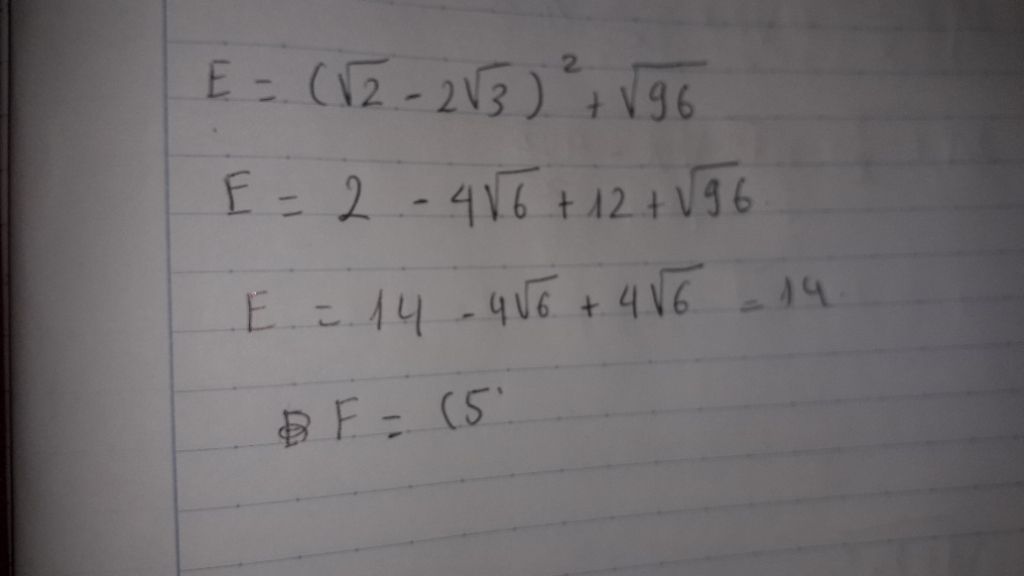 E = (√2 - 2√3)² + √96
E = 2 - 4√6 + 12 + √96
E = 14 - 4√6 + 4√6 = 14
F = (5